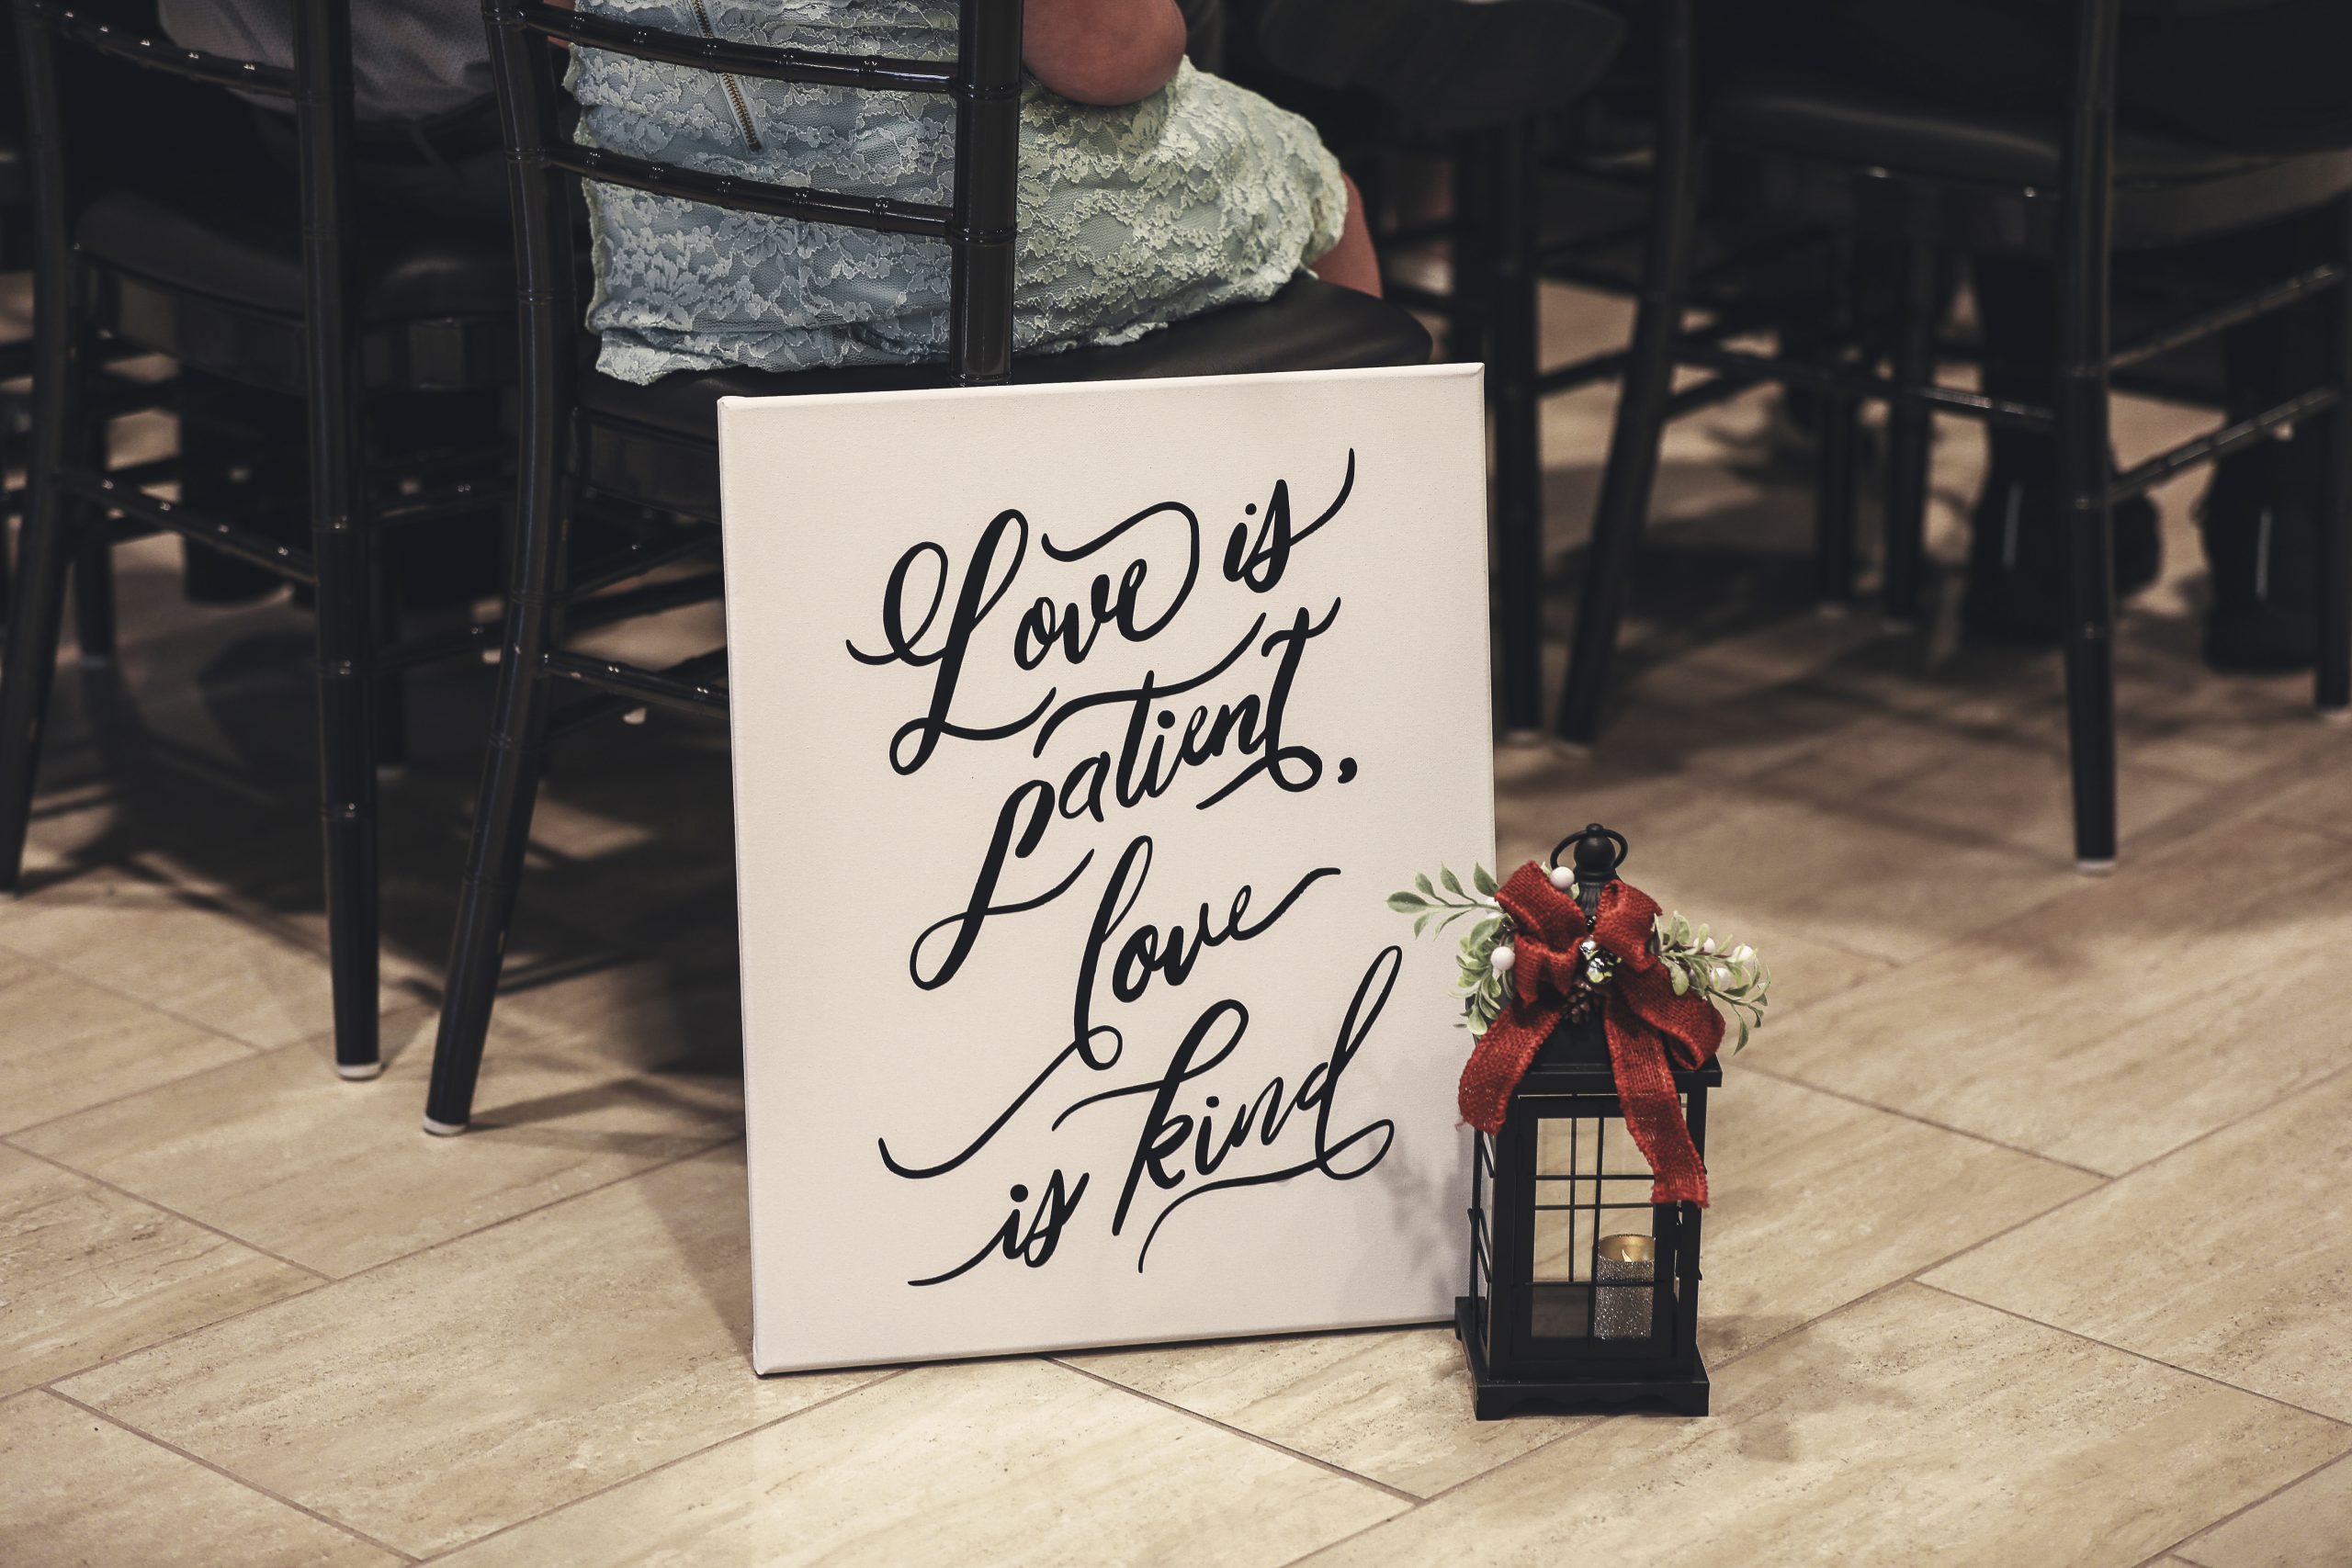 Love is
patient,
love
is kind